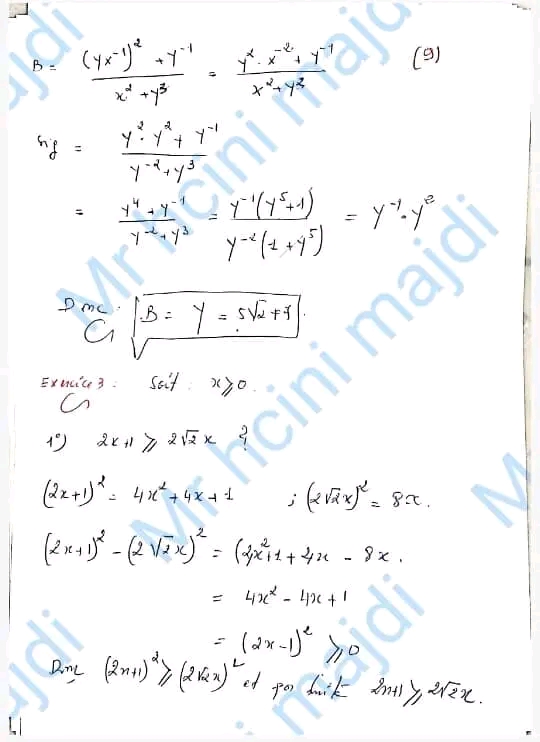 B = \frac{(yx^{-1})^2 + y^{-1}}{x^2 + y^3} = \frac{y^2 \cdot x^{-2} + y^{-1}}{x^2 + y^3} (9)
= \frac{y^2 \cdot y^2 + y^{-1}}{y^{-2} + y^3}
= \frac{y^4 + y^{-1}}{y^{-2} + y^3} = \frac{y^{-1}(y^5 + 1)}{y^{-2}(1 + y^5)} = y^{-1} \cdot y^2
Donc : B = y = 5√2 + 7.
Exercice 3 : Soit : x ⩾ 0.
1°) 2x+1 ⩾ 2√2x ?
(2x+1)² = 4x² + 4x + 1 ; (2√2x)² = 8x.
(2x+1)² - (2√2x)² = (4x²+1 + 4x - 8x.
= 4x² - 4x + 1
= (2x-1)² ⩾ 0
Donc (2x+1)² ⩾ (2√2x)² et par suite 2x+1 ⩾ 2√2x.
Mr hcini majdi